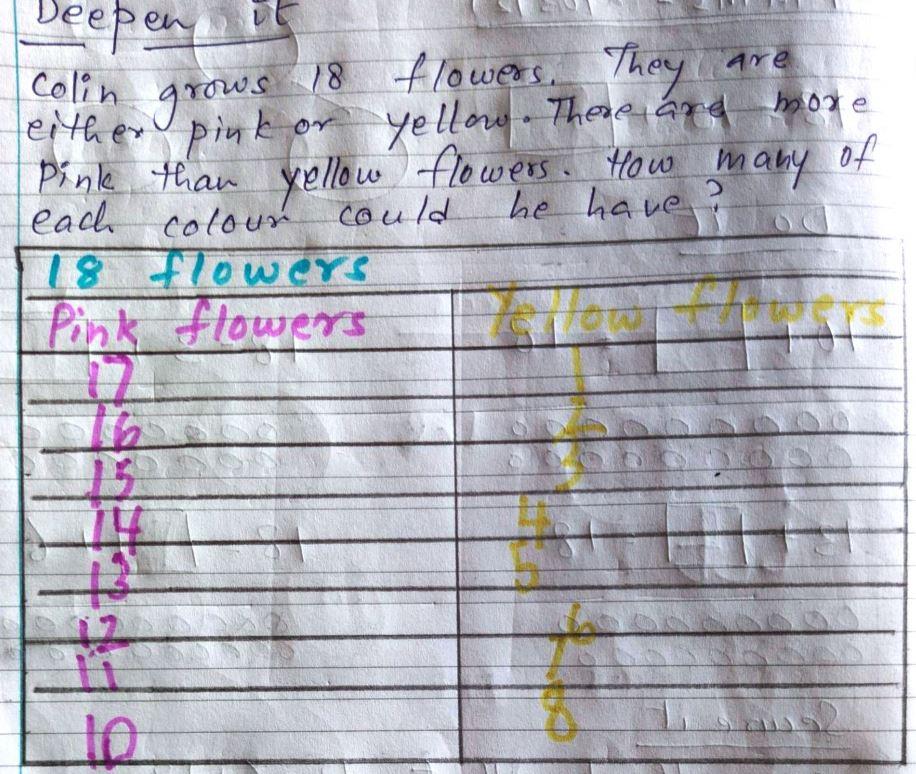 Deepen it
Colin grows 18 flowers. They are
either pink or yellow. There are more
Pink than yellow flowers. How many of
each colour could he have?
18 flowers
Pink flowers Yellow flowers
17 1
16 2
15 3
14 4
13 5
12 6
11 7
10 8